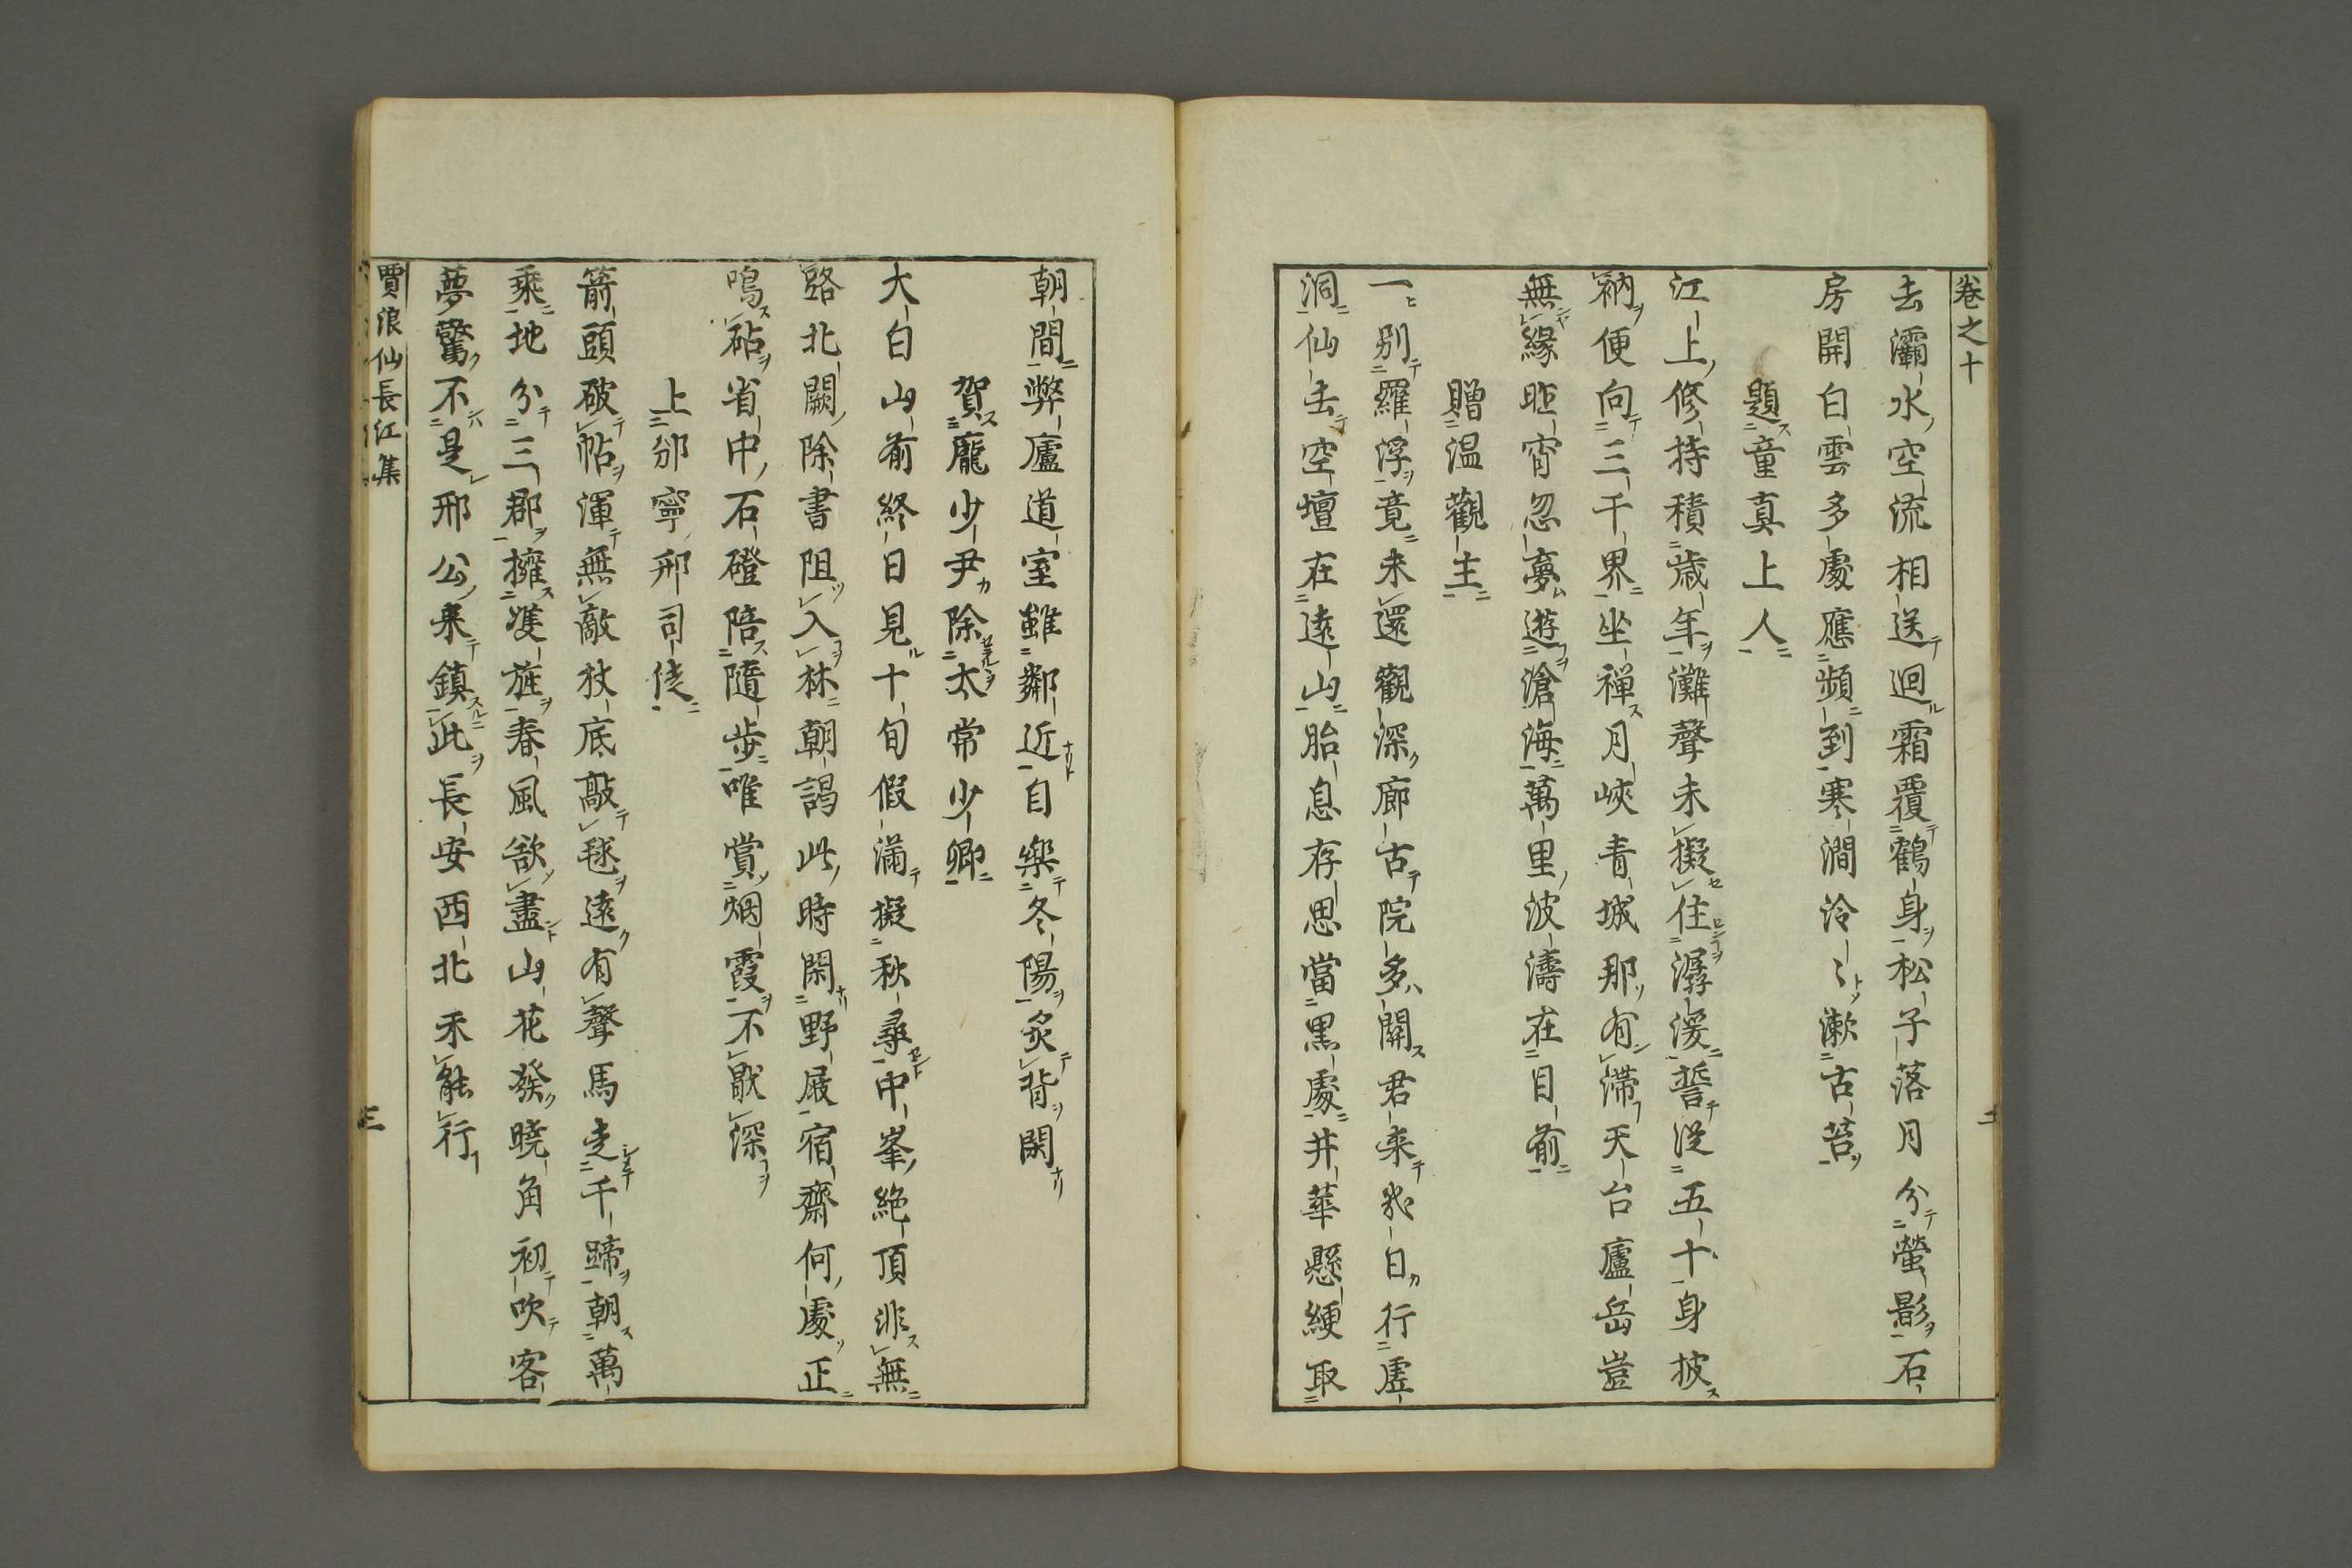 卷之十
二
去灞水空流相送迴霜覆鶴身松子落月分螢影石
房開白雲多處應頻到寒澗泠〻漱古苔
題童真上人
江上修持積歲年灘聲未擬住潺湲誓從五十身披
衲便向三千界坐禅月峽青城那有滯天台廬岳豈
無緣昨宵忽夢遊滄海萬里波濤在目前
贈温觀主
一別羅浮竟未還觀深廊古院多關君來幾日行虛
洞仙去空壇在遠山胎息存思當黒處井華懸綆取
朝間弊廬道室雖鄰近自樂冬陽炙背閑
賀龐少尹除太常少卿
大白山前終日見十旬假滿擬秋尋中峯絶頂非無
路北闕除書阻入林朝謁此時閑野屐宿齋何處正
鳴砧省中石磴陪隨步唯賞烟霞不厭深
上邠寧邢司徒
箭頭破帖渾無敵杖底敲毬遠有聲馬走千蹄朝萬
乘地分三郡擁雙旌春風欲盡山花發曉角初吹客
夢驚不是邢公來鎮此長安西北未能行
賈浪仙長江集
三